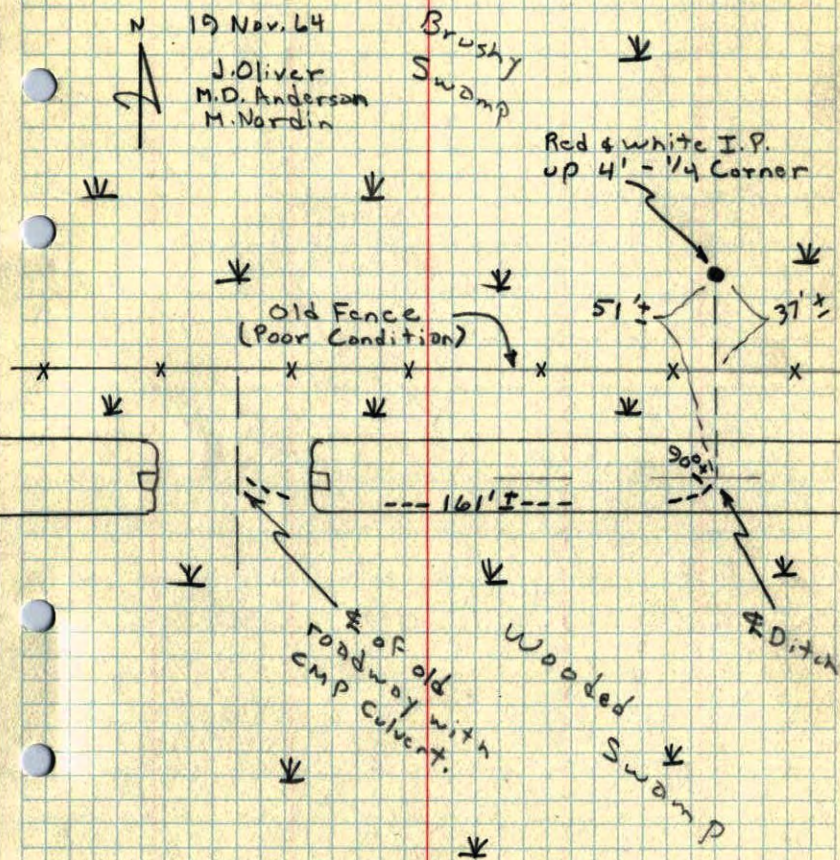 N
19 Nov. 64
J. Oliver
M.D. Anderson
M. Nordin
Brushy
Swamp
Red & white I.P.
up 4' - 1/4 Corner
51' ±
37' ±
Old Fence
(Poor Condition)
90° ±
161' ±
℄ of old
roadway with
CMP Culvert.
℄ Ditch
Wooded
Swamp